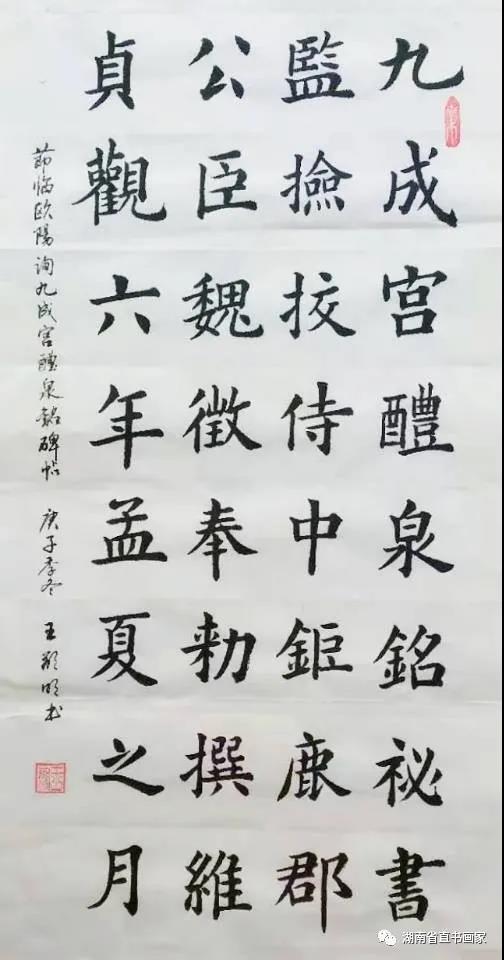 九成宫醴泉銘祕書
監撿挍侍中鉅鹿郡
公臣魏徵奉勑撰維
貞觀六年孟夏之月
節临欧陽詢九成宫醴泉銘碑帖 庚子季冬 王 明书
湖南省直书画家